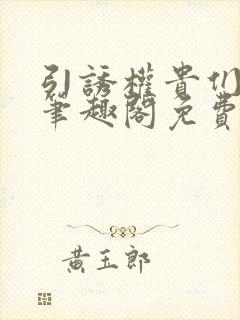 引誘權貴们
筆趣閣免費
黃玉郎